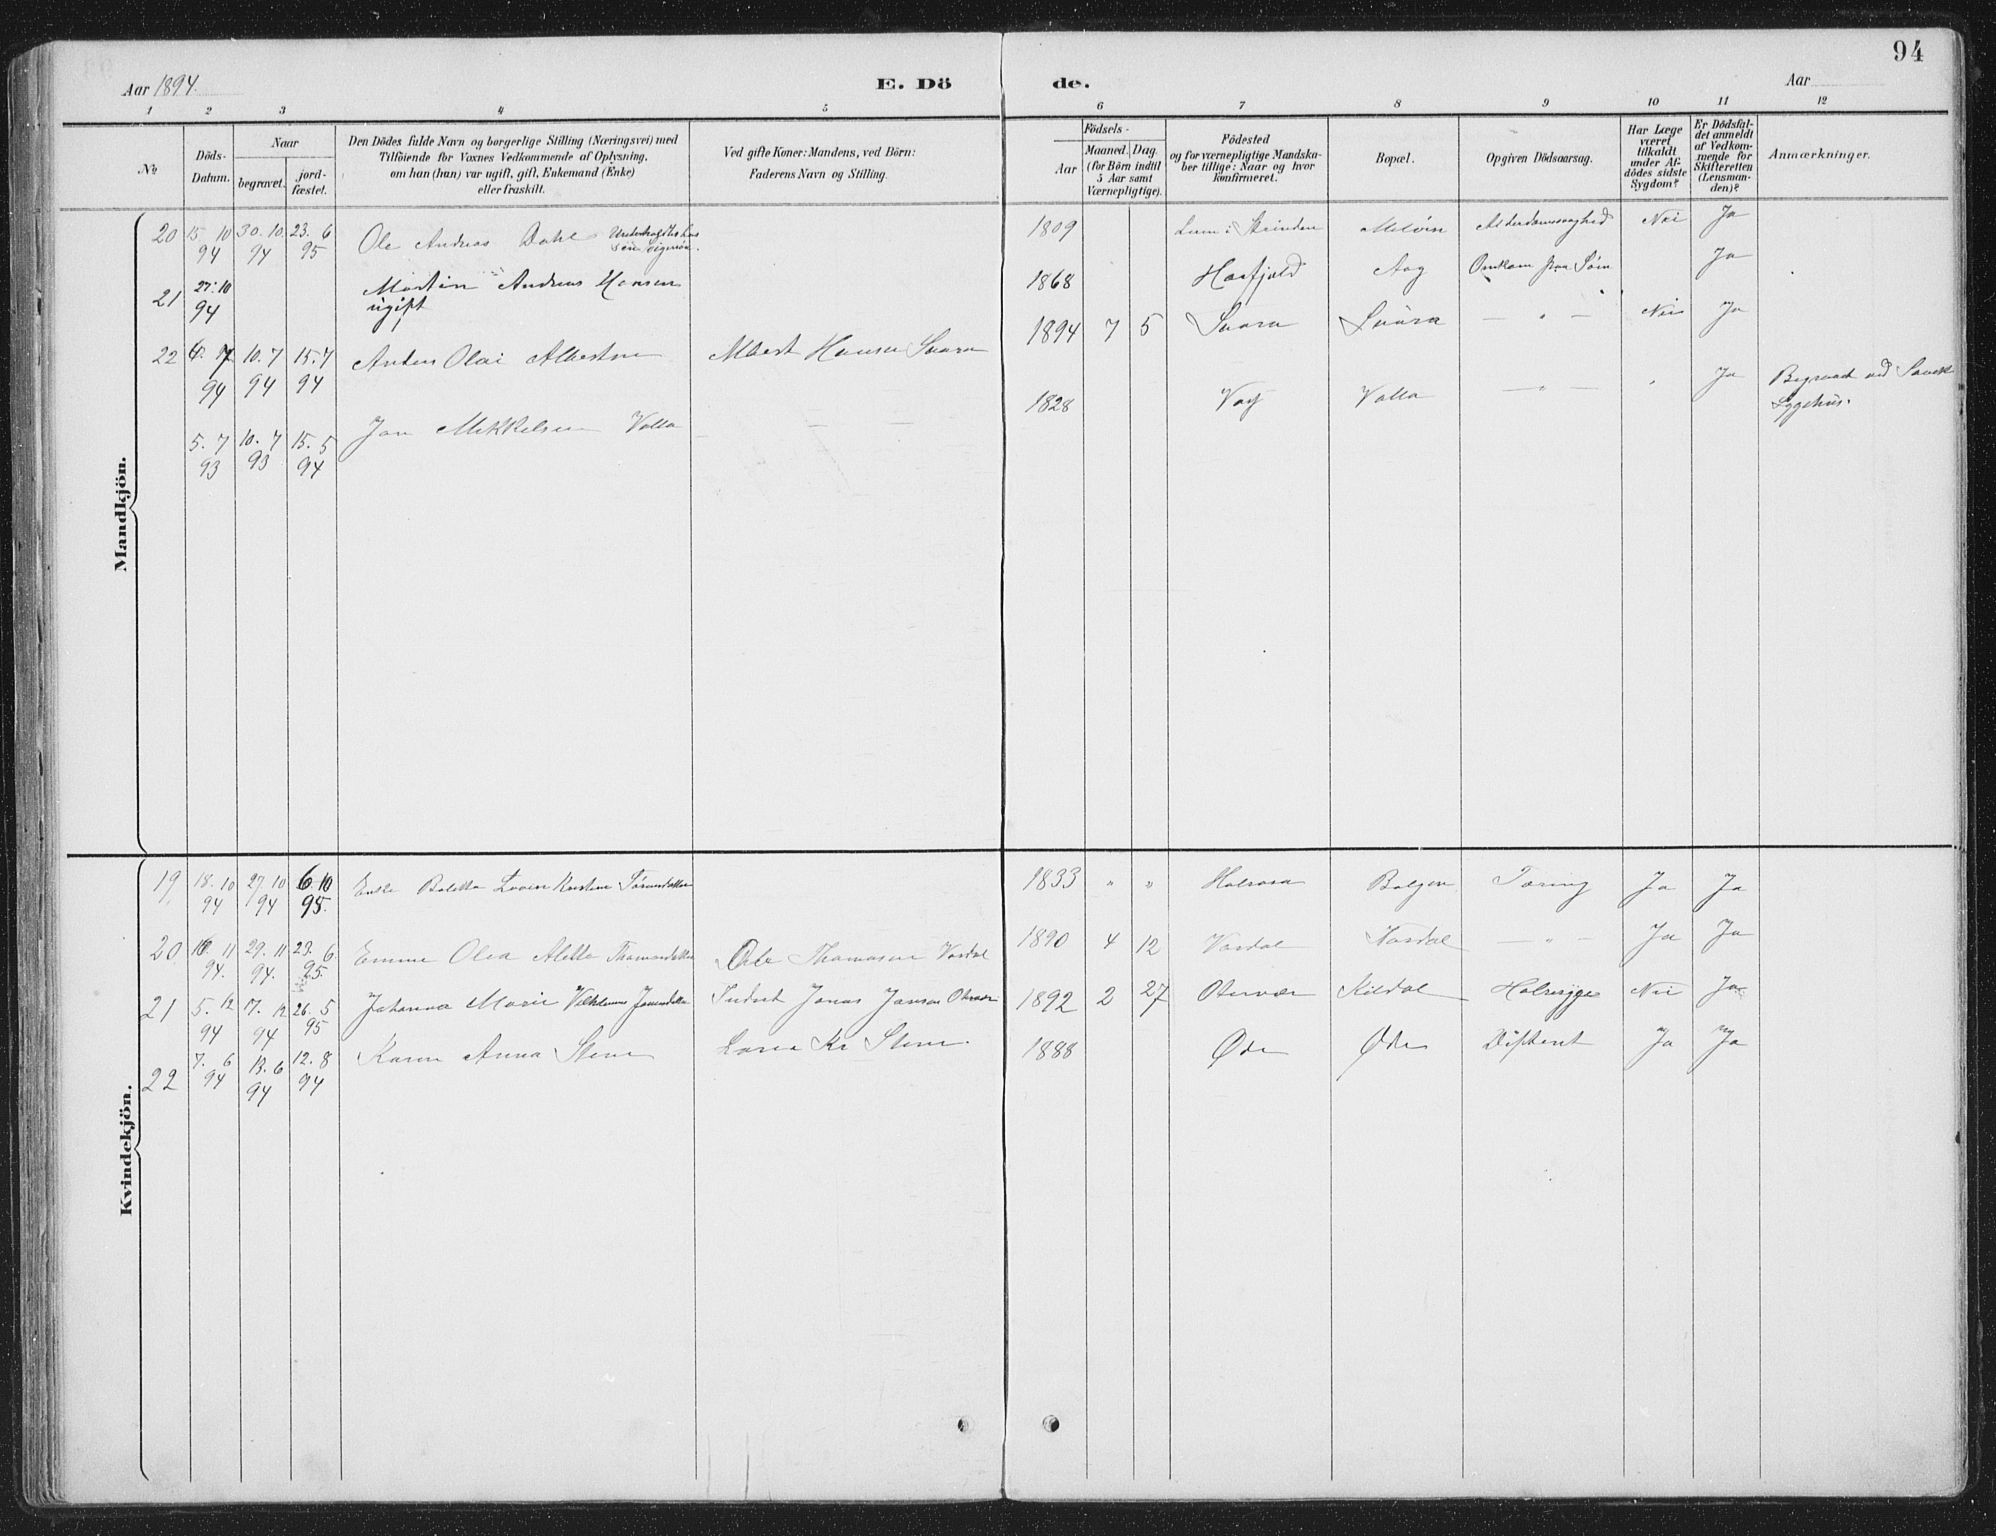 94
Aar 1894.
E. Dö de.
Aar
1 2 3 4 5 6 7 8 9 10 11 12
No
Döds-
Datum.
Naar
begravet.
jord-
fæstet.
Den Dödes fulde Navn og borgerlige Stilling (Næringsvei) med
Tilföiende for Voxnes Vedkommende af Oplysning,
om han (hun) var ugift, gift, Enkemand (Enke)
eller fraskilt.
Ved gifte Koner: Mandens, ved Börn:
Faderens Navn og Stilling.
Födsels-
Aar
Maaned. Dag.
(for Börn indtil
5 Aar samt
Værnepligtige).
Födested
og for værnepligtige Mandska-
ber tillige: Naar og hvor
konfirmeret.
Bopæl.
Opgiven Dödsaarsag.
Har Læge
været
tilkaldt
under Af-
dödes sidste
Sygdom?
Er Dödsfal-
det anmeldt
af Vedkom-
mende for
Skifteretten
(Lensman-
den)?
Anmærkninger.
Mandkjön.
20 15. 10 94 30. 10. 94 23. 6 95 Ole Andreas Dahl 1809 Alderdomssvaghed Nei Ja
21 27. 10 94 Martin Andreas Hansen 1868 Haafjeld Aag Omkom paa Søen Ja
ugift
22 6. 7 94 10. 7 94 15. 7 94 Anders Olai Albertsen Albert Hansen Svara 1894 7 5 Svara Svara — " — Nei Ja
5. 7 93 10. 7 93 15. 5 94 Jon Mikkelsen Valla 1828 Vaag Valla — " — " Ja Begravet ved
Sygehus.
Kvindekjön.
19 18. 10 94 27. 10 94 6. 10 95. Enke Boletta 1833 " " Bolgen Tæring Ja Ja
20 16. 11 94. 29. 11 94. 23. 6 95. Emma Olea Aletta Thomasdatter Ole Thomassen Vasdal 1890 4 12 Vasdal Vasdal — " — Ja Ja
21 5. 12 94 17. 12 94 26. 5 95 Johanna Marie Jonas Jonsen 1892 2 27 Otervær Kildal Halssyge Nei Ja
22 7. 6 94 13. 6 94 12. 8 94 Karen Anna Stene Kr Stene. 1888 Øde Øde Ja Ja